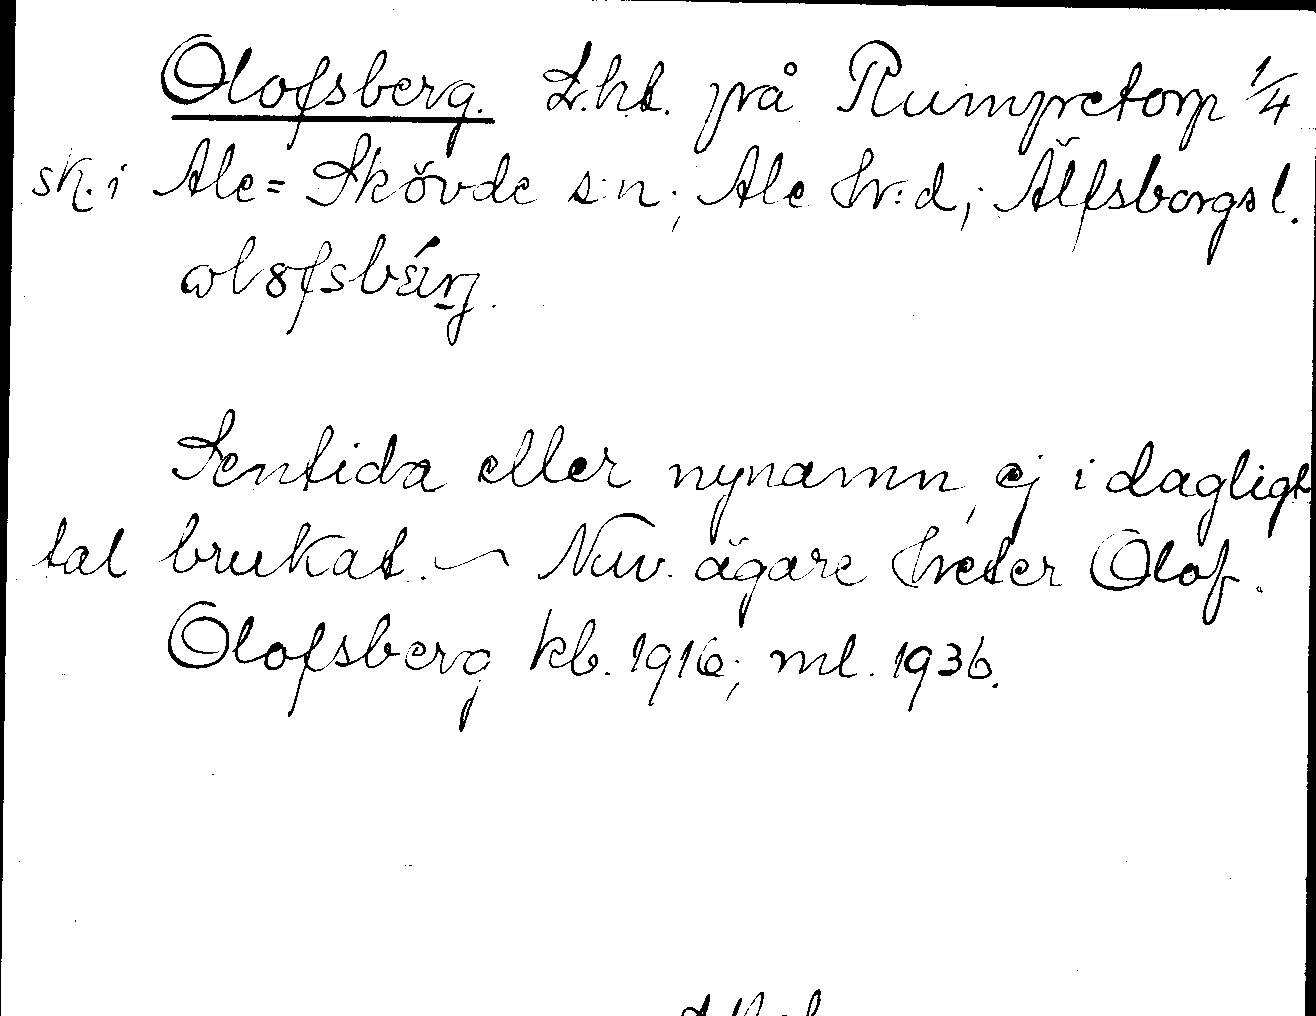 Olofsberg. L.ht. på Rumpetorp 1/4
sk. i Ale=Skövde s:n; Ale hr:d; Älfsborgs l.
Sentida eller nynamn, ej i dagligt
tal brukat. ~ Nuv. ägare heter Olof.
Olofsberg kb. 1916; ml. 1936.